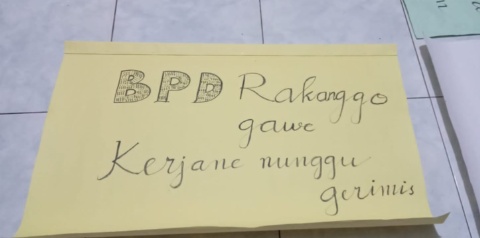 BPD Rakanggo
gawe
Kerjane nunggu
gerimis